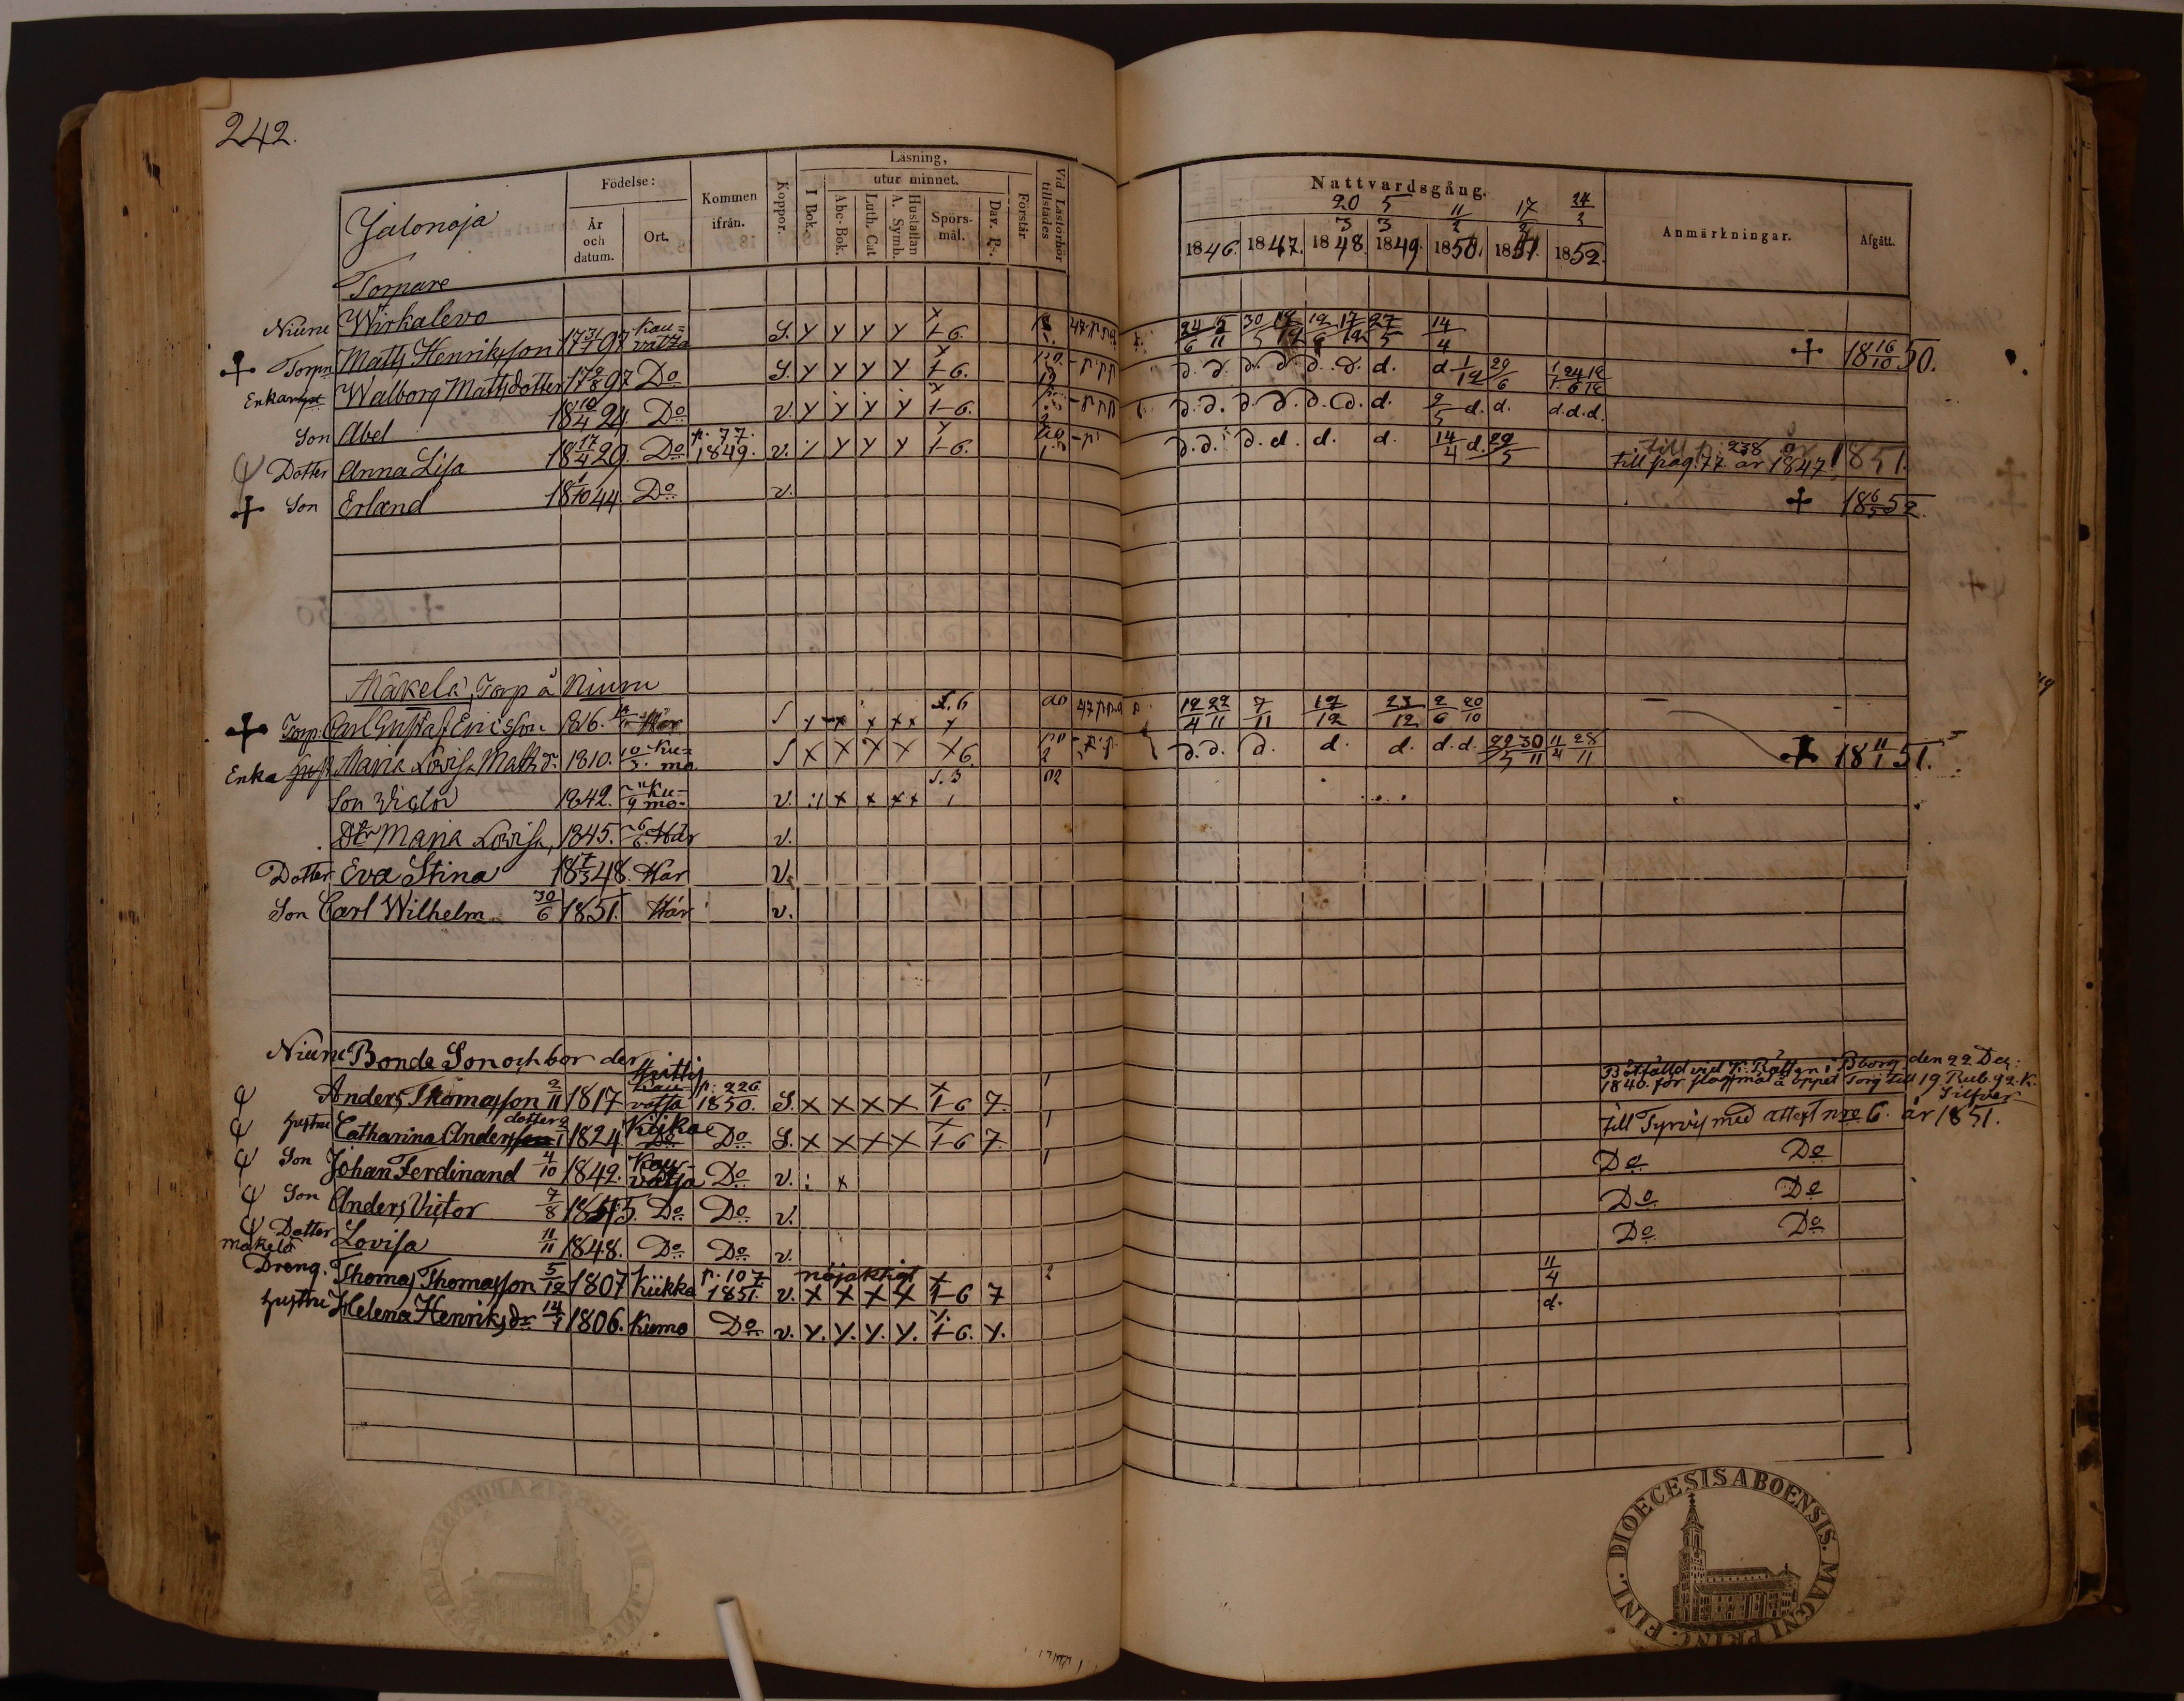 242.
Jalonoja
Födelse:
År och datum.
Ort.
Kommen ifrån.
Koppor.
Läsning,
utur minnet.
I Bok.
Abc-Bok.
Luth. Cat
Hustaflan A. Symb.
Spörs-mål.
Dav. Ps.
Förstår
Vid Läsförhör tillstädes
Nattvardsgång.
20/3 5/3 11/2 17/2 24/2
1846. 1847. 1848. 1849. 1850. 1851. 1852.
Anmärkningar.
Afgått.
Torpare
Niuru Wirkalevo
Torpn Matts Henriksson 17 97 Kau=vatza S. y y y y 1-6. 24/6 5/11 14/4 + 18 16/10 50.
Enka Walborg Mathsdotter 17 97 Do S. y y y y 1-6. d. d. d. d. d. d. d. d 1/12 29/6
Son Abel 18 10/4 24 Do v. y y y y 1-6. d. d. d. d. d. d. d. 9/5 d. d. d. d. d.
Dotter Anna Lisa 18 17/4 29. Do p. 77. 1849. v. y y y 1-6. d. d. d. d. d. d. 14/4 d. 29/5 till p. 238 år 1851.
till pag. 77 år 1847
+ Son Erland 18 1/10 44. Do v. + 18 6/5 52.
Mäkelä, Torp å Niuru
+ Torp. Carl Gustaf Ericsson 1816. Här 12/4 22/11 7/11 17/12 23/12 2/6 20/10
Enka Maria Lovisa Math.dr 1810. 10/3. Ku=mo d. d. d. d. d. d. d. 29/5 30/11 11/4 28/11 + 18 11/1 51.
Son Victor 1842. Ku-mo- v.
Dtr Maria Lovisa, 1845. Här v.
Dotter Eva Stina 18 48. Här v.
Son Carl Wilhelm 30/6 1851. Här v.
Niuru Bonde Son och bor der
Anders Thomasson 2/11 1817 Kau-vatsa p. 226 1850. S. x x x x 1-6 7.
Bötfälld vid K. Rätten i Bborg den 22 Dec: 1840. för slagsmål å öppet Torg till 19 Rub. 92 K. Silfver
till Tyrvis med attest nro 6. år 1851.
hustru Catharina Andersdotter 1824 Kiikka Do S. x x x x 1-6 7. Do Do
Son Johan Ferdinand 4/10 1842. Kau-vatsa Do v. Do Do
Son Anders Victor 7/8 1845. Do Do v. Do Do
Dotter Lovisa 11/11 1848. Do Do v.
mäkelä Dreng. Thomas Thomasson 5/12 1807 Kiikka p. 107 1851. v. nöjaktigt x x x x 1-6 7 11/4
hustru Helena Henriksdr 14/1 1806. Kumo Do v. y. y. y. y. 1-6. y. d.
FINL. DIOECESIS ABOENSIS. MAGNI PRINC.